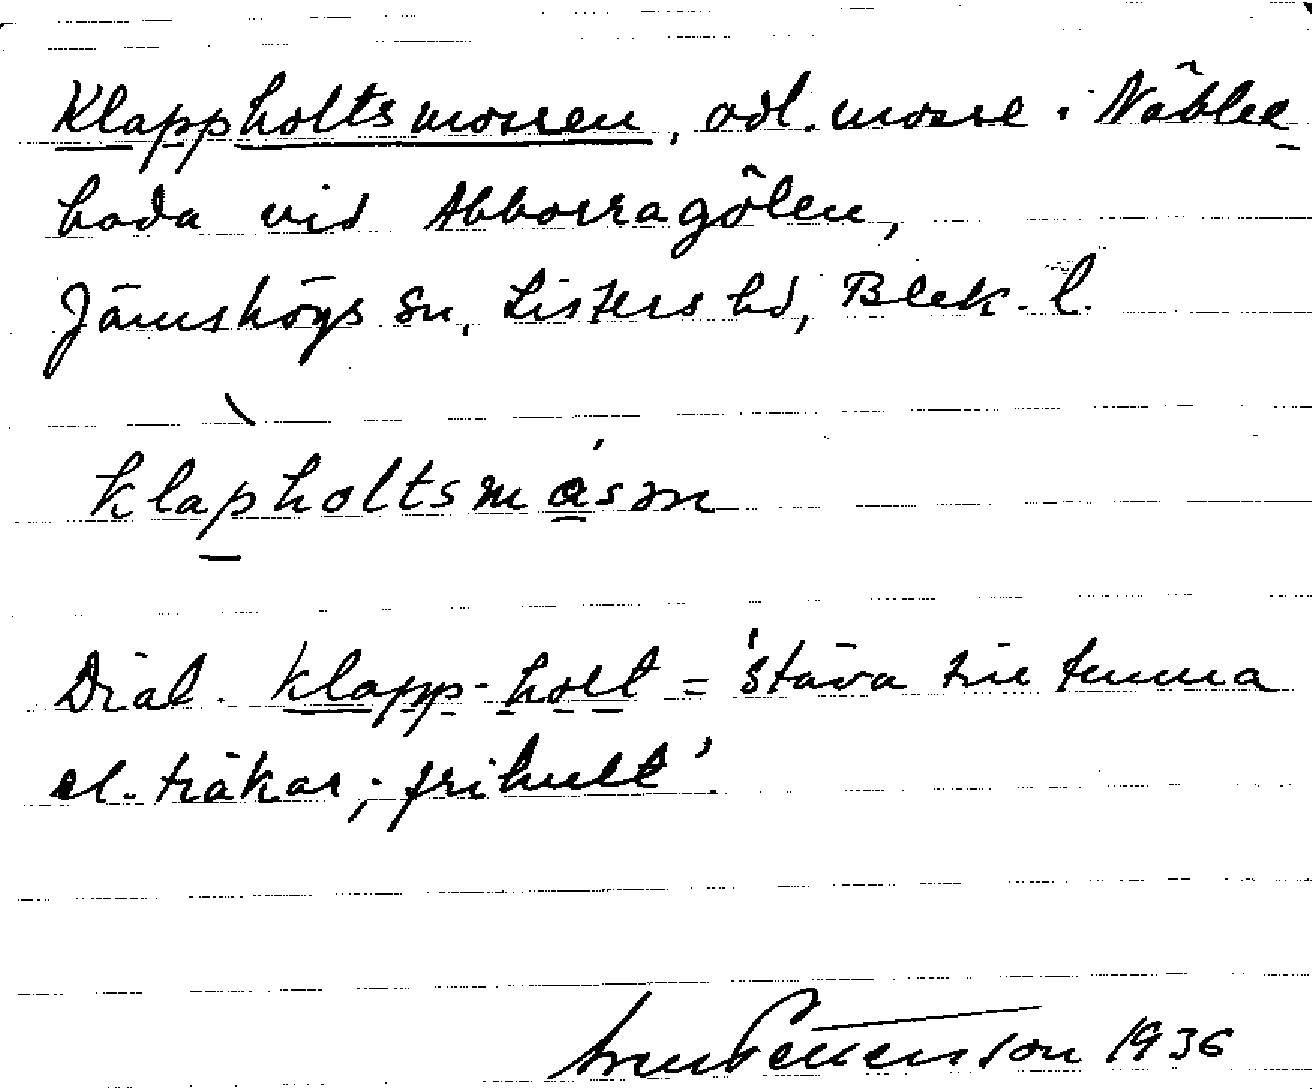 Klappholtsmossen, odl. mosse i Nåble-
boda vid Abborragölen,
Jämshögs sn, Listers hd, Blek. l.
klapholtsmåssn
Dial. klapp-holt = 'stäva till tunna
el. träkar;
Pettersson 1936